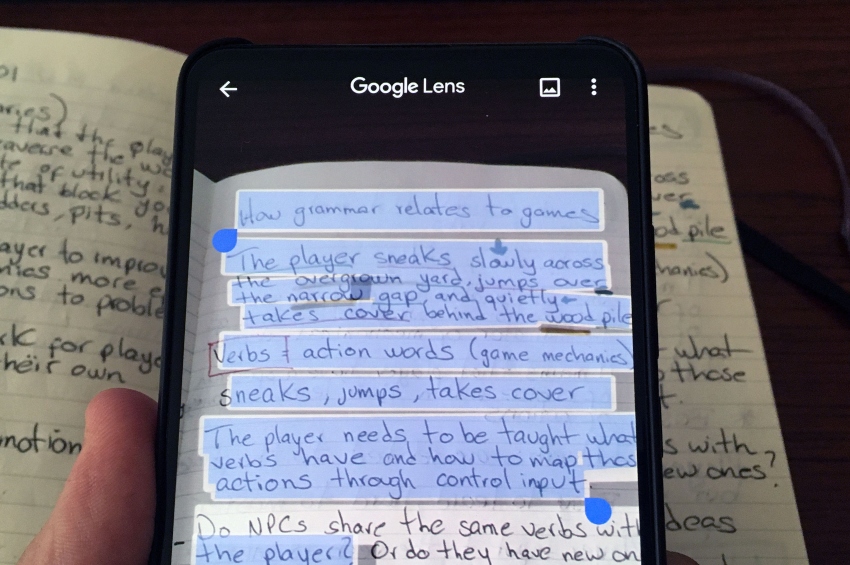 Google Lens
How grammar relates to games
The player sneaks slowly across
the overgrown yard, jumps over
the narrow gap and quietly
takes cover behind the wood pile
Verbs = action words (game mechanics)
sneaks, jumps, takes cover
The player needs to be taught what
verbs have and how to map thos
actions through control input
Do NPCs share the same verbs with
the player? Or do they have new on
that the play
averse the w
te of utility.
that block yo
dders, pits, h
ayer to improv
nics more e
ons to proble
rk for playe
heir own
notion
oss
ver
od pile
hanics)
what
those
t.
s with
ew ones?
deas